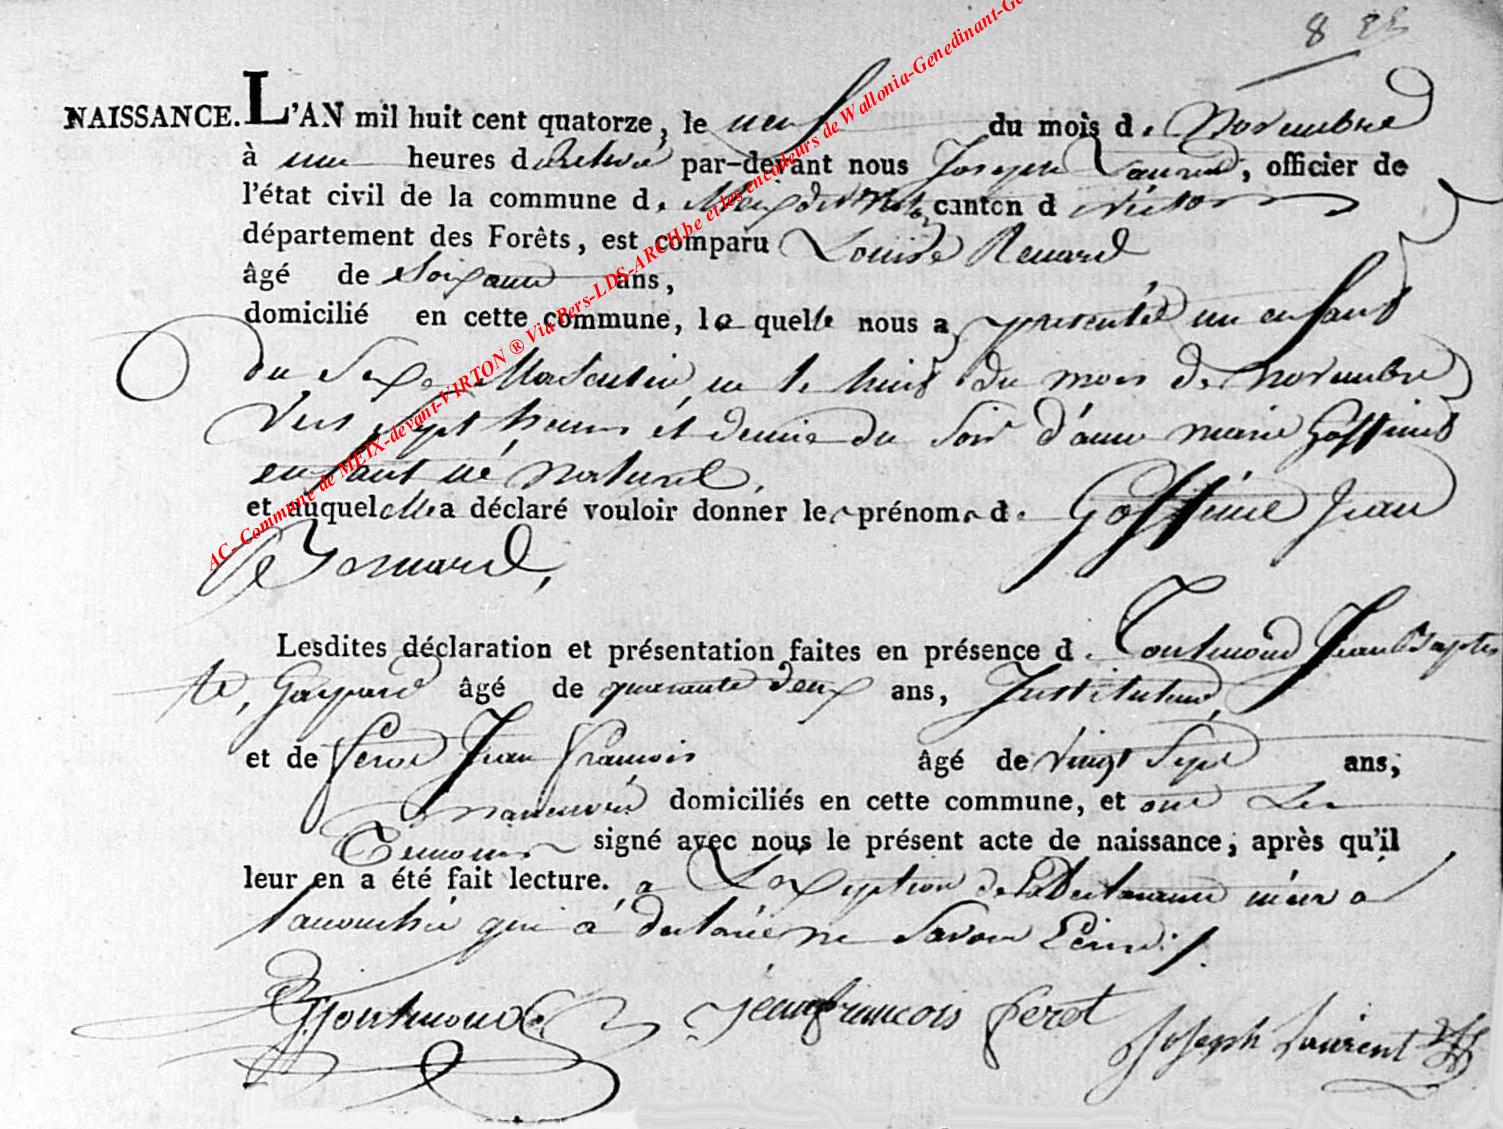 8
NAISSANCE. L'AN mil huit cent quatorze, le neuf du mois de Novembre
à une heures de relevée par-devant nous Joseph Laurent, officier de
l'état civil de la commune de Meix dvt Virton canton d virton
département des Forêts, est comparu Louise Renard
âgé de Soixante ans,
domicilié en cette commune, la quelle nous a présenté un enfant
du Sexe Masculin, né le huit du mois de novembre
vers Sept heures et demie du Soir d'anne marie Goffinet
enfant né naturel,
et auquel elle a déclaré vouloir donner les prénoms de Goffinet Jean
Bernard,
Lesdites déclaration et présentation faites en présence de Jean Baptis
te, Gaspard âgé de quarante deux ans, Instituteur,
et de feret Jean françois âgé de vingt Sept ans,
manœuvre domiciliés en cette commune, et ont Les
Temoins signé avec nous le présent acte de naissance, après qu'il
leur en a été fait lecture. a L'exception de la Declarante
qui a declaré ne Savoir Ecrire.
Jean francois feret
Joseph Laurent
AC- Commune de MEIX-devant-VIRTON ® Via Pers-LDS-ARCH.be et les encodeurs de Wallonia-Genedinant-Ge